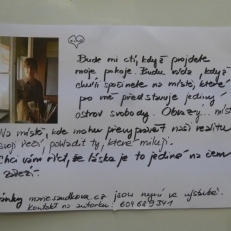 Bude mi ctí, když projdete
moje pokoje. Budu ráda, když
chvíli spočinete na místě, které
po mě představuje jediný
ostrov svobody. Obrazy... místo
Na místě, kde mohu převypravět naši realitu
svojí řečí, pohladit ty, které miluji.
Chci vám říct, že láska je to jediné na čem
záleží.
marie.sandkova.cz jsou nyní ve výstavbě.
kontakt na autorku: 604 689 341